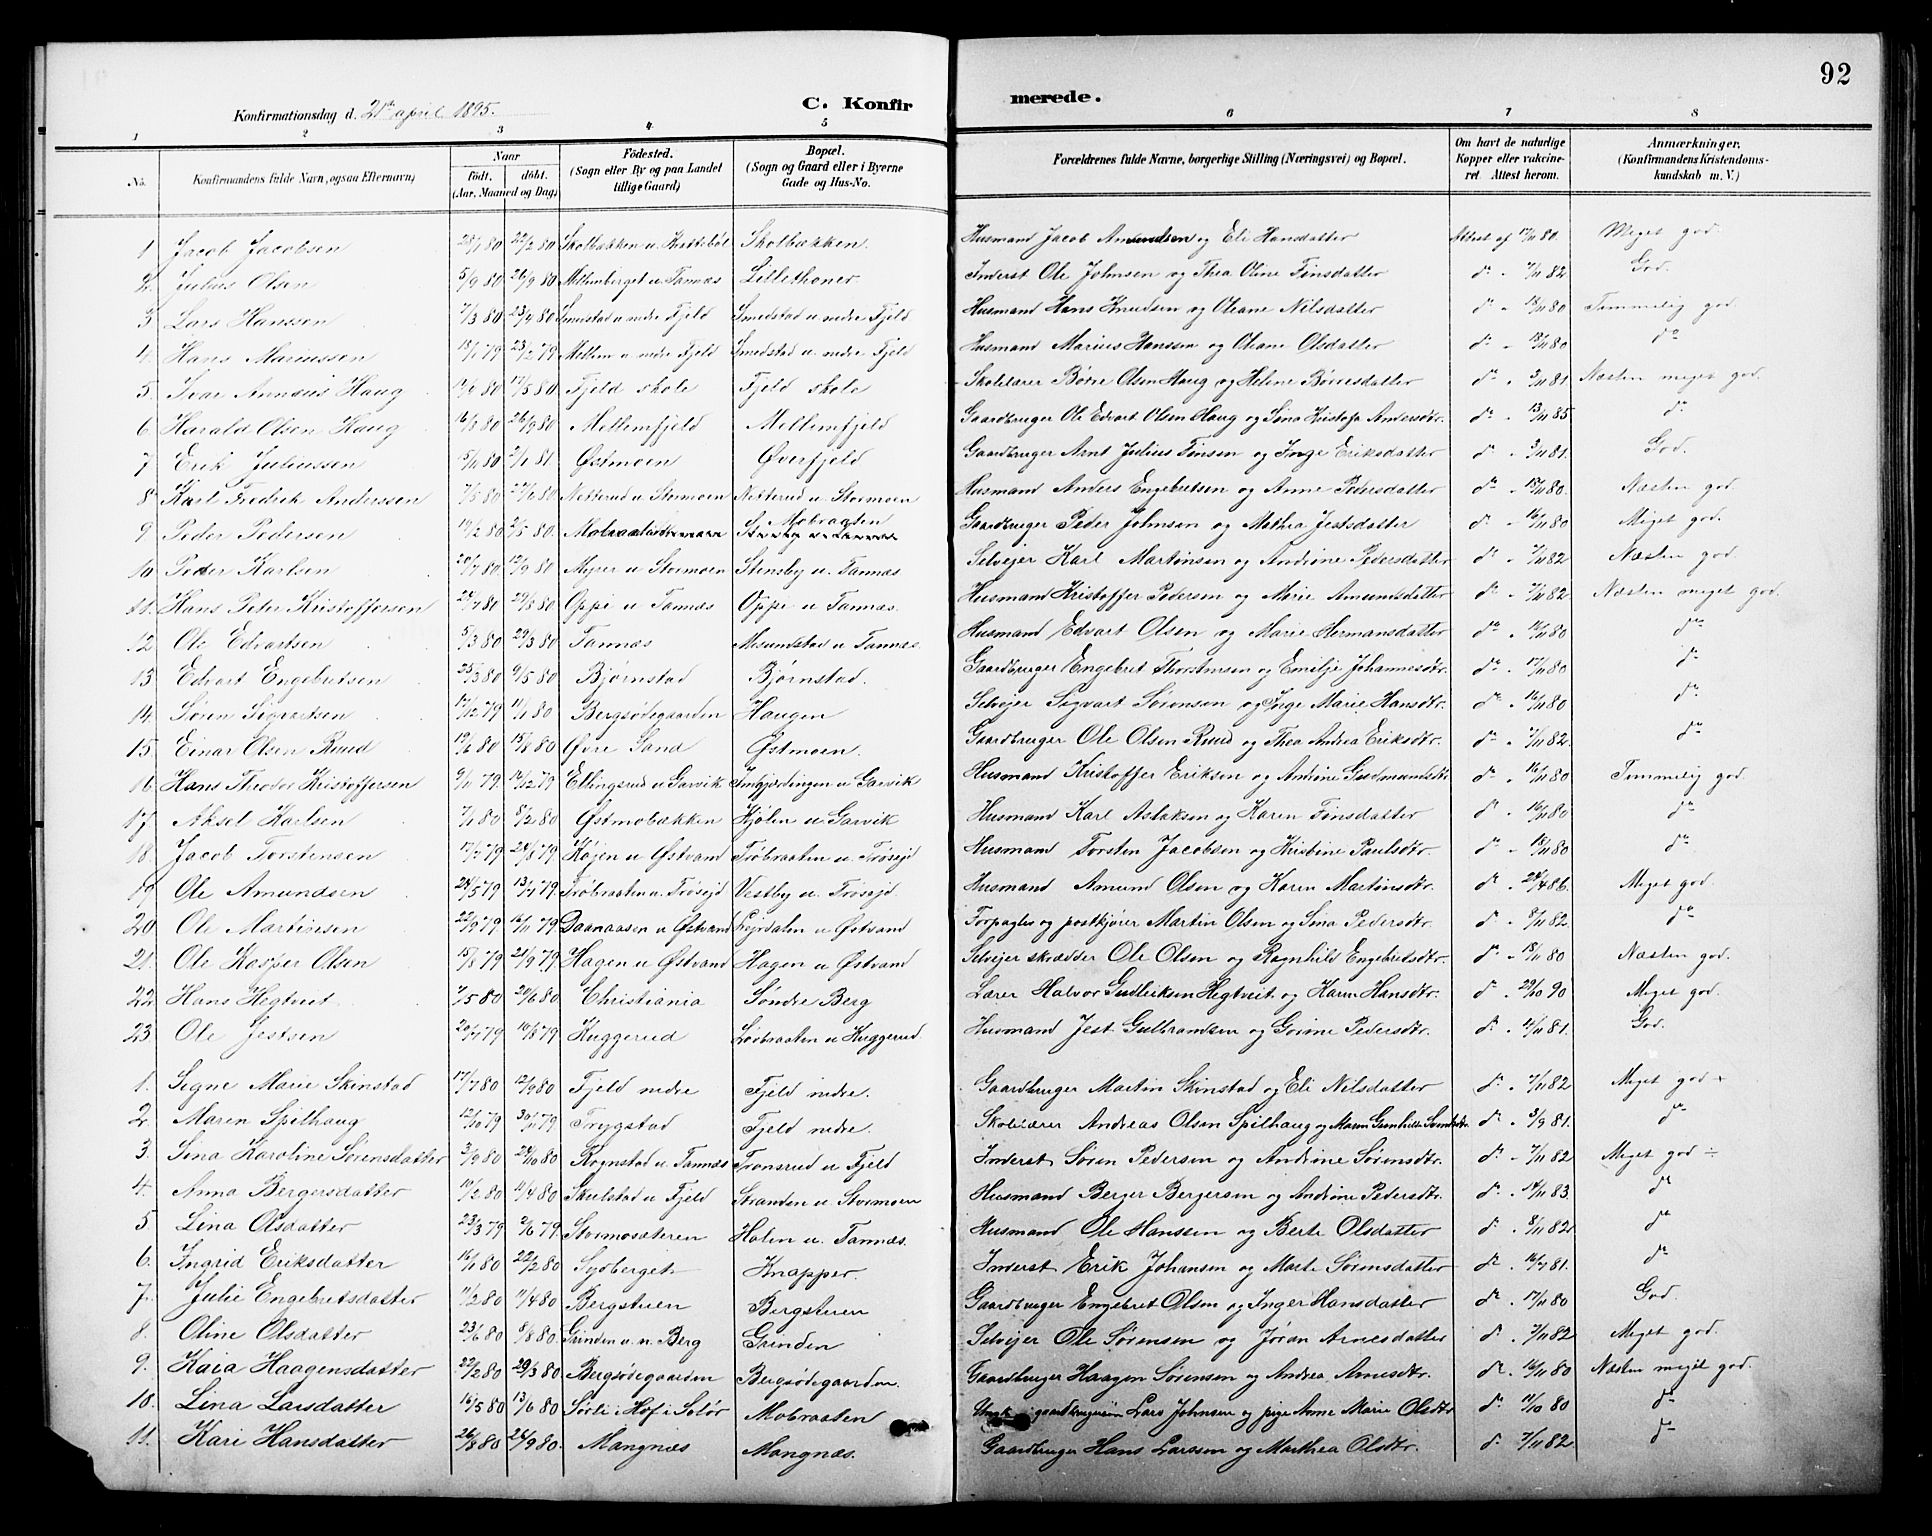 92
Konfirmationsdag d. 21de april 1895.
C. Konfirmerede.
1 2 3 4 5 6 7 8
No. Konfirmandens fulde Navn, ogsaa Efternavn, Naar födt. döbt. (Aar, Maaned og Dag) Födested. (Sogn eller By og paa Landet tillige Gaard) Bopæl. (Sogn og Gaard eller i Byerne Gade og Hus-No. Forældrenes fulde Navne, borgerlige Stilling (Næringsvei) og Bopæl. Om havt de naturlige Kopper eller vakcineret. Attest herom. Anmærkninger. (Konfirmandens Kristendomskundskab m. V.)
1 Jacob Jacobsen 28/1 80 22/2 80 Skolbækken u. Kattebøl Skolbækken. Husmand Jacob Amundsen og Eli Hansdatter Attest af 17/11 80. Meget god.
2 Julius Olsen 5/9 80 26/9 80 Mellemberget u. Tannæs Lillethoner. Inderst Ole Johnsen og Thea Oline Finsdatter do - 7/11 82. God.
3 Lars Hanssen 7/3 80 23/4 80 Smedstad u. nedre Fjeld Smedstad u. nedre Fjeld Husmand Hans Knudsen og Oleane Nilsdatter do - 18/11 80 Temmelig god
4 Hans Mariussen 13/1 79 23/2 79 Mellem u. nedre Fjeld Smedstad u. nedre Fjeld Husmand Marius Hanssen og Oleane Olsdatter do - 18/11 80 do
5. Ivar Annæus Haug 17/5 80 Fjeld skole Fjeld skole Skolelærer Børre Olsen Haug og Helene Børresdatter do - 3/11 81. Næsten meget god.
6. Harald Olsen Haug 26/9 80 Mellemfjeld Mellemfjeld Gaardbruger Ole Edvart Olsen Haug og Sina Kristofa Andersdtr. do - 13/11 85 do
7 Erik Juliussen 5/11 80 2/1 81 Østmoen Øverfjeld Gaardbruger Arnt Julius Finsen og Inge Eriksdatter do - 3/11 81. God.
8 Karl Fredrik Anderssen 7/5 80 27/6 80 Netterud u. Stormoen Netterud u. Stormoen Husmand Anders Engebretsen og Anne Pedersdatter do - 18/11 80. Næsten god.
9 Peder Pedersen 19/2 80 2/5 80 Mobraaten Gaardbruger Peder Johnsen og Mathea Jestsdatter do - 16/11 80 Meget god.
10 Peder Karlsen 20/7 80 12/9 80 Myrer u. Stormoen Stensby u. Tannæs. Selvejer Karl Martinsen og Andrine Pedersdatter do - 7/11 82 Næsten god.
11. Hans Peter Kristoffersen 24/7 80 29/8 80 Oppi u. Tannæs Oppe u. Tannæs. Husmand Kristoffer Pedersen og Marie Amundsdatter do - 7/11 82. Næsten meget god.
12 Ole Edvartsen 5/3 80 29/3 80 Tannæs Mesundstad u. Tannæs. Husmand Edvart Olsen og Marie Hermansdatter do - 16/11 80 do
13 Edvart Engebretsen 25/3 80 9/5 80 Bjørnstad Bjørnstad. Gaardbruger Engebret Thorstensen og Emilje Johannesdtr. do - 17/11 80 do
14. Søren Sigvartsen 17/12 79 11/1 80 Bergsødegaarden Haugen Selvejer Sigvart Sørensen og Inge Marie Hansdtr. do - 16/11 80 do
15. Einar Olsen Ruud 19/6 80 15/8 80 Øvre Sand Østmoen. Gaardbruger Ole Olsen Ruud og Thea Andrea Eriksdtr. do - 7/11 82. do
16 Hans Theodor Kristoffersen 9/11 79. 14/12 79 Ellingsrud u. Garvik Indgjærdingen u. Garvik Husmand Kristoffer Eriksen og Andrine Gudmundsdtr do - 16/11 80 Temmelig god.
17. Aksel Karlsen 7/1 80 8/2 80 Østmobækken Kjølen u. Garvik Husmand Karl Aslaksen og Karen Finsdatter do - 16/11 80 do
18. Jacob Torstensen 17/7 79 24/8 79. Køjen u. Østvand Frøbraaten u. Frøsejd Husmand Torsten Jacobsen og Kristine Paulsdtr. do - 18/11 80 do
19. Ole Amundsen 24/5 79 13/7 79. Frøbraaten u. Frøsejd Vestby u. Frøsejd Husmand Amund Olsen og Karen Martinsdtr. do - 28/4 86. Meget god.
20. Ole Martinsen 22/9 79 16/11 79 Daanaasen u. Østvand Lejrdalen u. Østvand Forpagter og postkjører Martin Olsen og Sina Pedersdtr. do - 8/11 82. do
21. Ole Kasper Olsen 15/8 79 21/9 79. Hagen u. Østvand Hagen u. Østvand Selvejer skrædder Ole Olsen og Ragnhild Engebretsdtr. do - 18/11 80 Næsten god.
22. Hans Hegtveit 7/5 80 20/6 80 Christiania Søndre Berg Lærer Halvor Gudleiksen Hegtveit og Karen Hansdtr. do - 29/10 90 Meget god.
23. Ole Jestsen 20/7 79 10/8 79 Kuggerud Løvbraaten u. Kuggerud. Husmand Jest Gulbrandsen og Gorine Pedersdtr. do - 11/11 81. God.
1. Signe Marie Skinstad 17/7 80 12/9 80 Fjeld nedre Fjeld nedre. Gaardbruger Martin Skinstad og Eli Nilsdatter do - 7/11 82 Meget god +
2. Maren Spilhaug 12/10 79 30/11 79 Trygstad Fjeld nedre. Skolelærer Andreas Olsen Spilhaug og Maren Gunhilde Svendsdtr do - 3/9 81. do
3. Sina Karoline Sørensdatter 3/9 80 24/10 80 Rognstad u. Tannæs Tronsrud u. Fjeld Inderst Søren Pedersen og Andrine Sørensdtr. do - 7/11 82 Meget god ÷
4. Anna Bergersdatter 10/2 80 11/4 80 Skulstad u. Fjeld Stranden u. Stormoen Husmand Berger Bergersen og Andrine Pedersdtr. do - 14/11 83. do
5. Lina Olsdatter 23/3 79 2/6 79. Stormosæteren Holen u. Tannæs. Husmand Ole Hanssen og Berte Olsdatter do - 8/11 82. do
6. Ingrid Eriksdatter 16/1 80 22/2 80 Sydberget Knapper. Inderst Erik Johansen og Marte Sørensdatter do - 16/7 81. do
7. Julie Engebretsdatter 11/2 80 11/4 80 Bergstuen Bergstuen Gaardbruger Engebret Olsen og Inger Hansdatter do - 17/11 80 God.
8. Oline Olsdatter 23/6 80 8/8 80. Grinden u. n. Berg Grinden Selvejer Ole Sørensen og Jøran Arnesdatter do - 7/11 82 Meget god.
9. Kaia Haagensdatter 22/2 80 29/3 80 Bergsødegaarden Bergsødegaarden. Gaardbruger Haagen Sørensen og Andrea Arnesdtr. do - 16/11 80 Næsten meget god.
10. Lina Larsdatter 16/5 80 13/6 80 Sørli Hof i Solør Mobraaten gaardbrugersøn Lars Johnsen og pige Anne Marie Olsdtr do 11/10 80 do
11. Kari Hansdatter 26/8 80 26/9 80. Mangnæs Mangnæs. Gaardbruger Hans Larssen og Marthea Olsdtr. do - 7/11 82. do